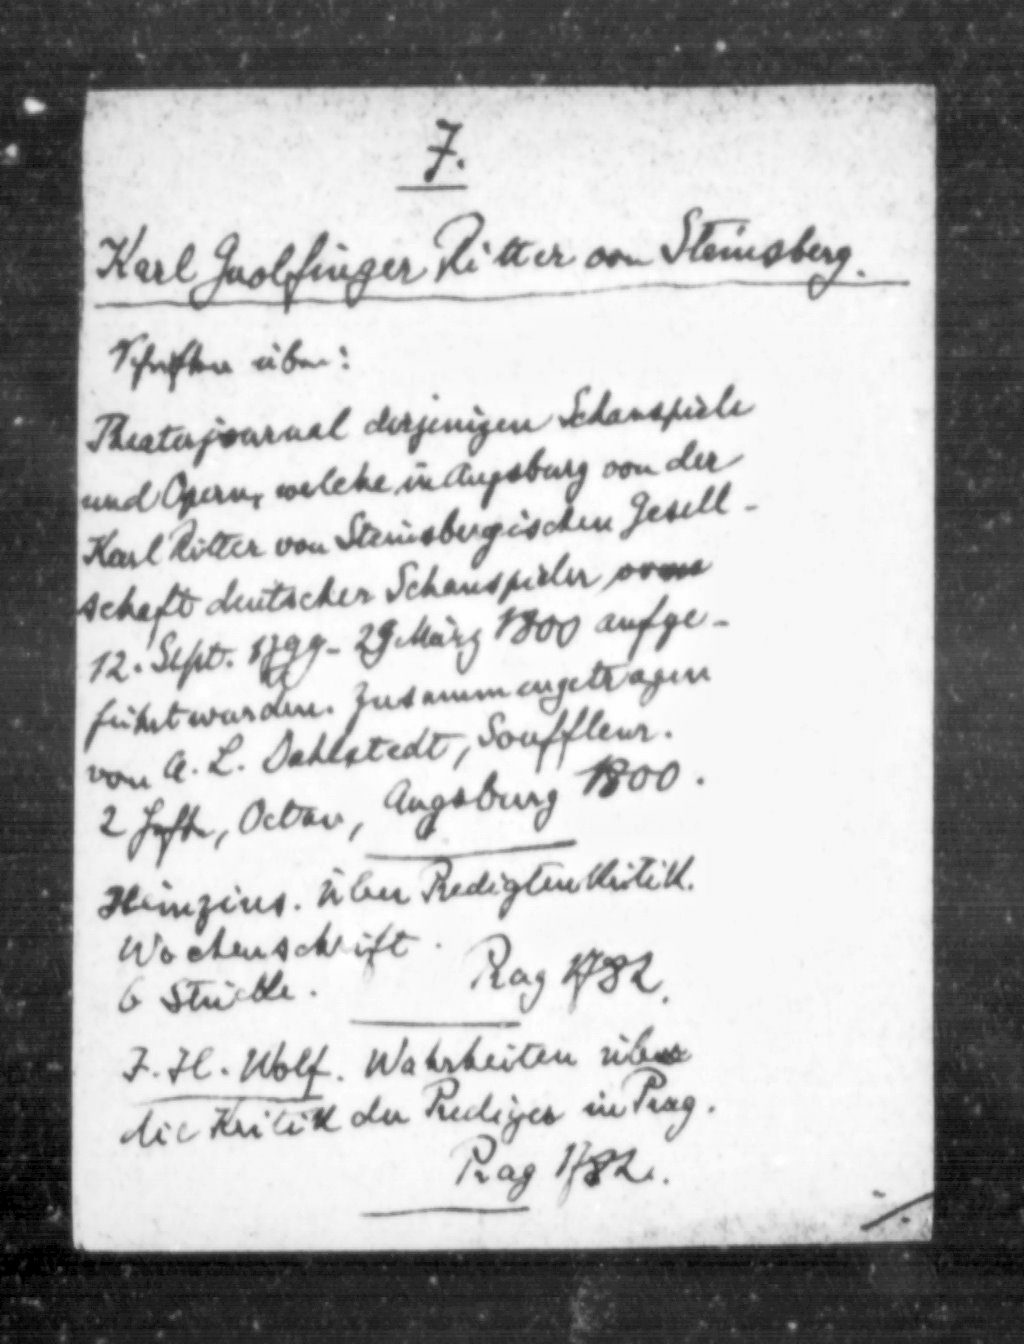 7.
Karl Guolfinger Ritter von Steinsberg.
Schriften über:
Theaterjournal derjenigen Schauspiele
und Opern, welche in Augsburg von der
Karl Ritter von Steinsbergischen Gesell-
schaft deutscher Schauspieler vom
12. Sept. 1799 - 29 März 1800 aufge-
führt wurden. Zusammengetragen
von A. L. Dahlstedt, Souffleur.
2 Hefte, Octav, Augsburg 1800.
Heinzius. Über Predigtenkritik.
Wochenschrift.
6 Stücke. Prag 1782.
J. H. Wolf. Wahrheiten über
die Kritik der Prediger in Prag.
Prag 1782.